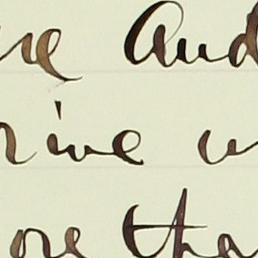 re and
rive w
ore tha